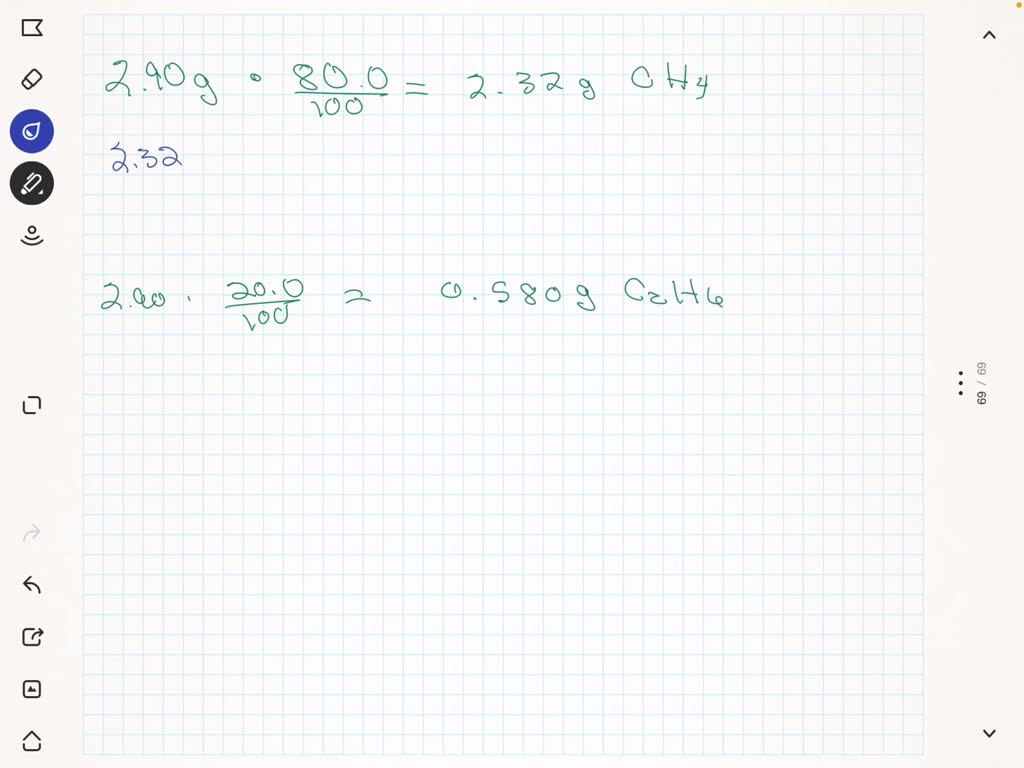 2.90g · 80.0/100 = 2.32g CH4
2.32
2.90 · 20.0/100 = 0.580g C2H6
69 / 69